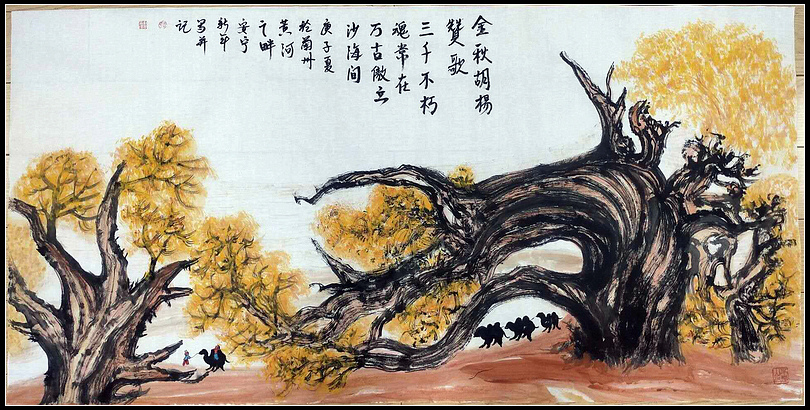 金秋胡杨
赞歌
三千不朽
魂常在
万古傲立
沙海间
庚子夏
於兰州
黄河
之畔
安宁
新年
写并
记